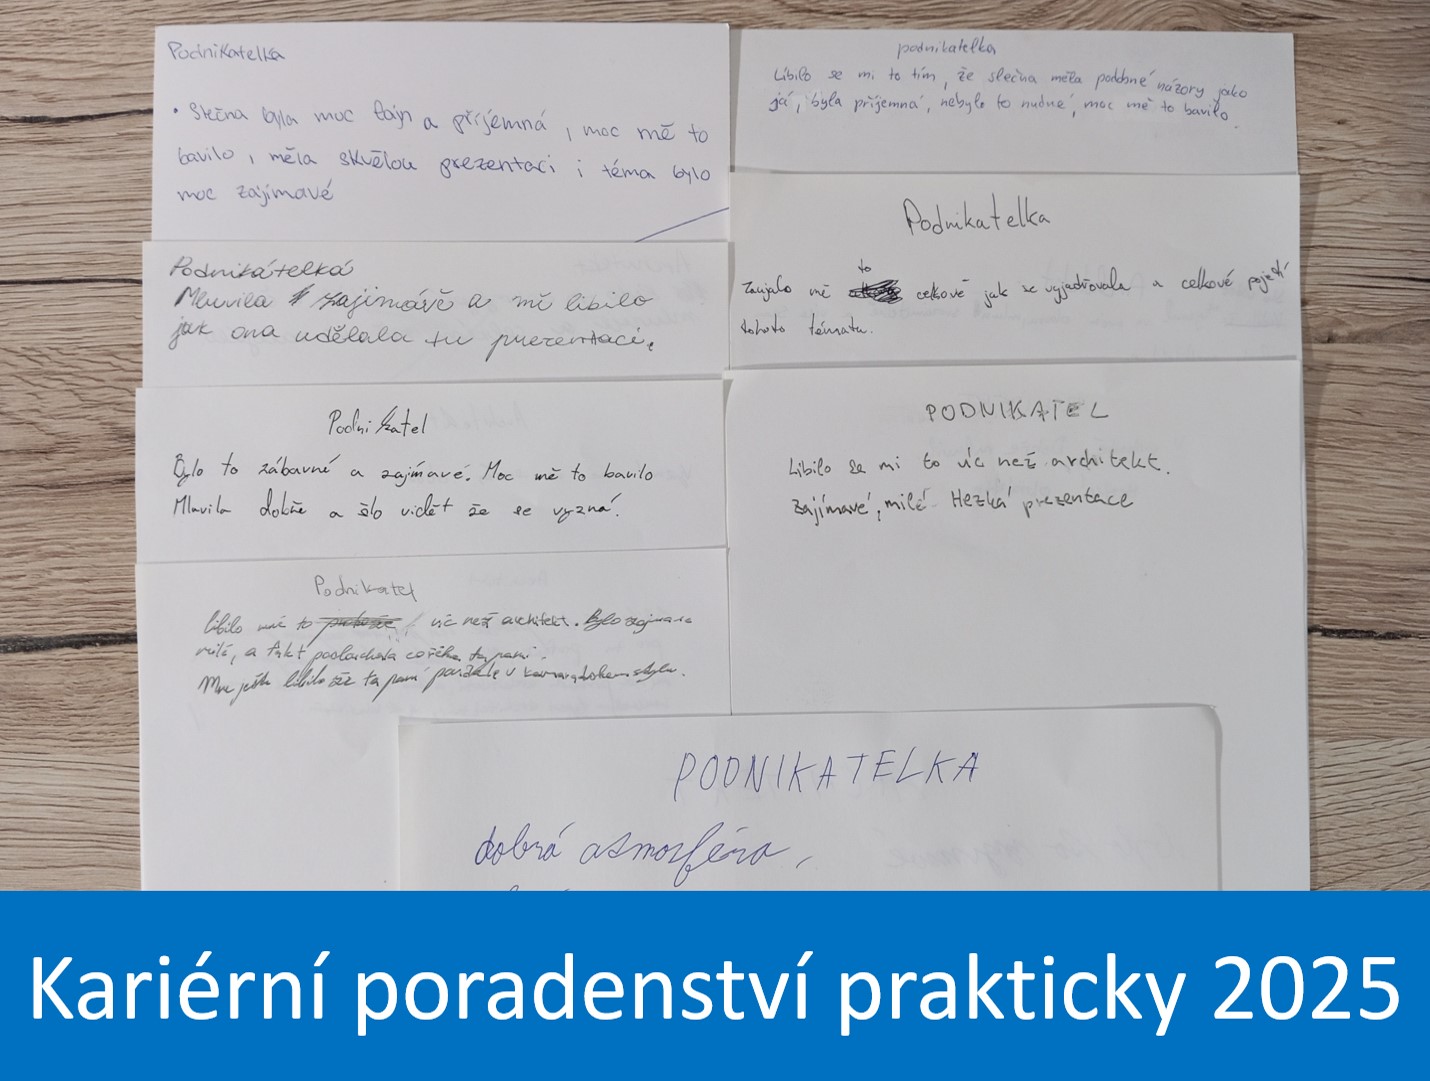 Podnikatelka
• Slečna byla moc fajn a příjemná, moc mě to
bavilo, měla skvělou prezentaci i téma bylo
moc zajímavé
podnikatelka
Líbilo se mi to tím, že slečna měla podobné názory jako
já, byla příjemná, nebylo to nudné, moc mě to bavilo.
Podnikátelká
Mluvila zajimávě a mě libilo
jak ona udělala tu prezentaci.
Podnikatelka
to
Zaujalo mě celkově jak se vyjadřovala a celkové pojetí
tohoto tématu.
Podnikatel
Bylo to zábavné a zajímavé. Moc mě to bavilo
Mluvila dobře a šlo vidět že se vyzná.
PODNIKATEL
Líbilo se mi to víc než architekt.
Zajímavé, milé Hezká prezentace
Podnikatel
libilo mně to víc než architekt. Bylo
milá, a fakt poslouchala co říká ta paní.
ještě líbilo že ta paní v
PODNIKATELKA
dobrá atmosféra,
Kariérní poradenství prakticky 2025